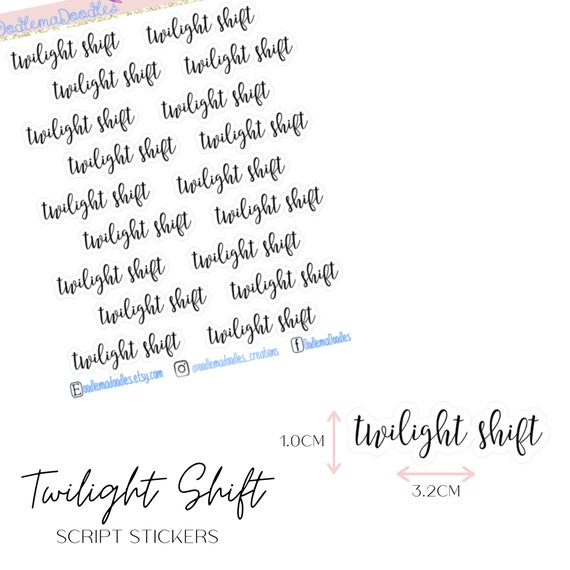 OodlemaDoodles
twilight shift twilight shift
twilight shift twilight shift
twilight shift twilight shift
twilight shift twilight shift
twilight shift twilight shift
twilight shift twilight shift
twilight shift twilight shift
twilight shift twilight shift
twilight shift twilight shift
E oodlemadoodles.etsy.com @oodlemadoodles_creations f OodlemaDoodles
1.0CM twilight shift
3.2CM
Twilight Shift
SCRIPT STICKERS